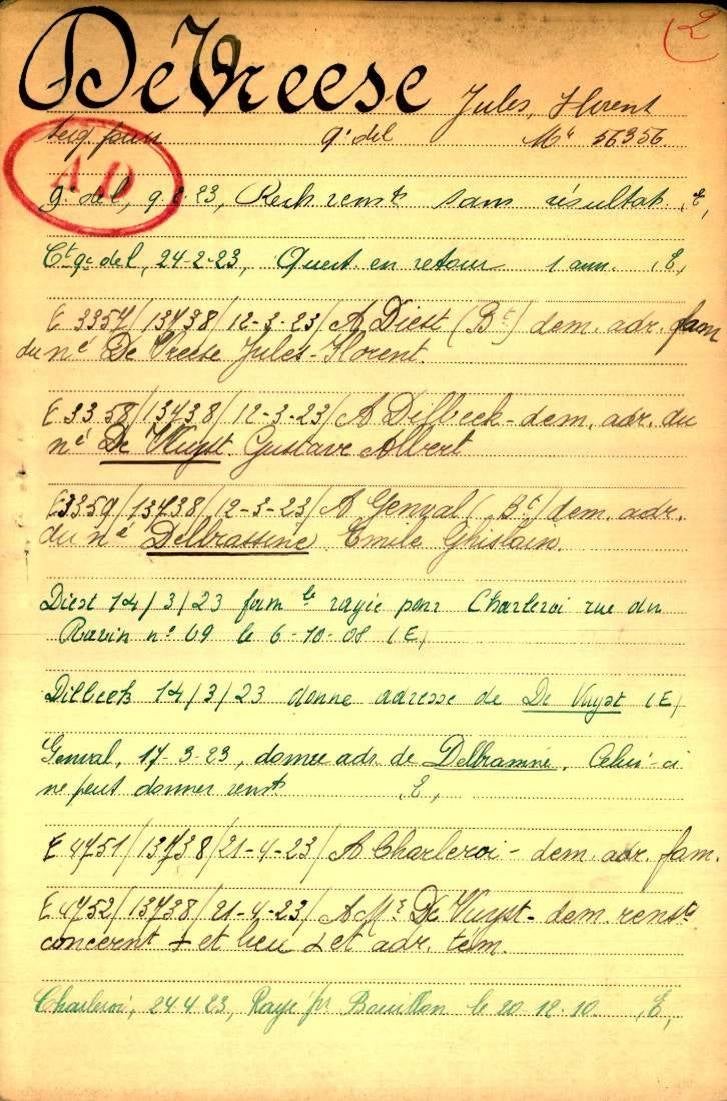 2
De Vreese Jules, Florent
9e del Mle 56356
AD
9e del, 9-2-23, Rech. renst sans résultat. (E)
Ct 9e del, 24-2-23, Quest. en retour 1 ann. (E)
E 3357/13738/12-3-23/A Diest (Bt) dem. adr. fam
du né De Vreese Jules-Florent.
E 3358/13738/12-3-23/A Dilbeek - dem. adr. du
né De Vuyst Gustave Albert
E 3359/13738/12-3-23/A Genval (Bt) dem. adr.
du né Delbrassine Emile Ghislain.
Diest 14/3/23 famle rayée pour Charleroi rue du
Ravin n° 69 le 6-10-08 (E)
Dilbeek 14/3/23 donne adresse de De Vuyst (E)
Genval, 17-3-23, donne adr. de Delbrassine. Celui-ci
ne peut donner renst (E)
E 4751/13738/21-4-23/A Charleroi - dem. adr. fam.
E 4752/13738/21-4-23/A Mr De Vuyst - dem. rensts
concernt + et lieu + et adr. tém.
Charleroi, 24.4.23, Rayé pr Bouillon le 20.12.10. (E)